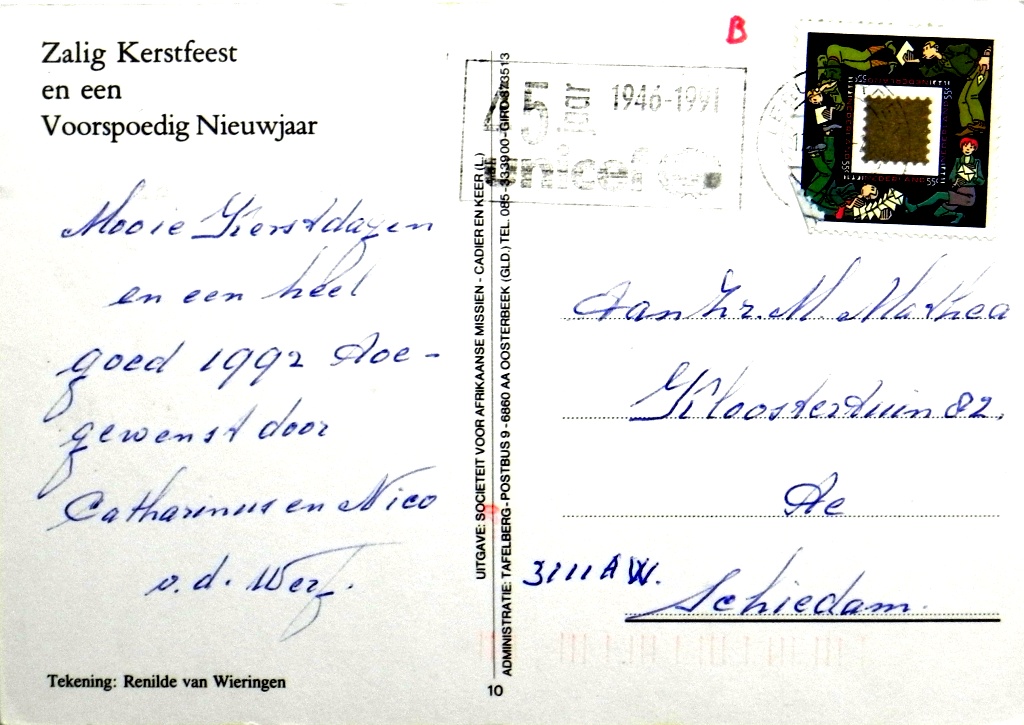 Zalig Kerstfeest
en een
Voorspoedig Nieuwjaar
Mooie Kerstdagen
en een heel
goed 1992 Toe-
gewenst door
Catharinus en Nico
v.d. Werf.
Tekening: Renilde van Wieringen
UITGAVE: SOCIETEIT VOOR AFRIKAANSE MISSIEN - CADIER EN KEER (L.)
ADMINISTRATIE: TAFELBERG - POSTBUS 9 - 6860 AA OOSTERBEEK (GLD.) TEL. 085-333900 - GIRO
10
B
45 jaar 1946-1991
unicef
NEDERLAND 55c
Aan Hr. M. Mathea
Kloostertuin 82.
Te
3111 AW.
Schiedam.